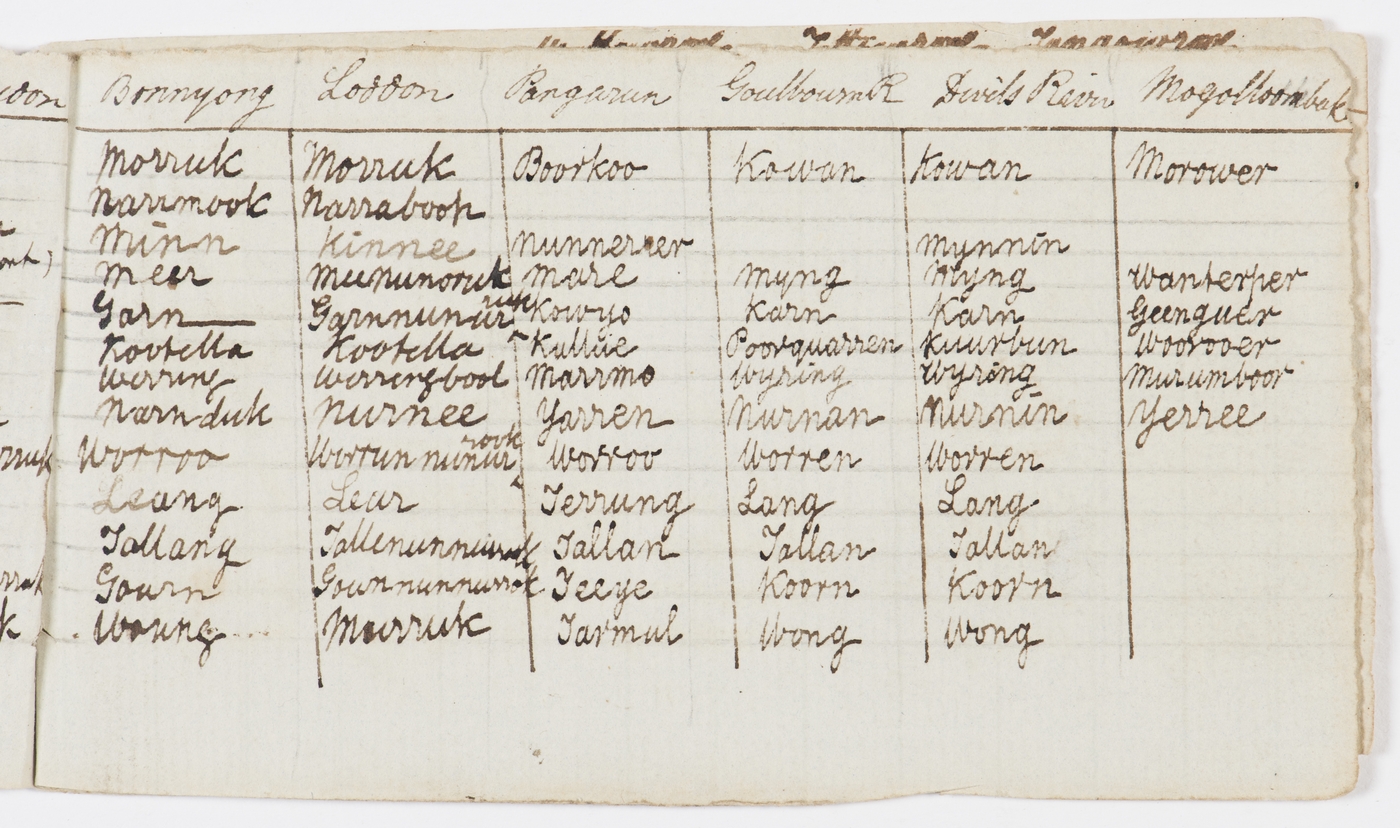 Bonnyong Loddon Pangurun Goulbourn R Devils River Mogolloombak
Morruk Morruk Boorkoo Kowan Kowan Morower
Narrmook Narraboop
Minn Kinnee Nunnerrer Mynnin
Meer Meenunoruk Mare Myng Myng Wanterper
Garn Garnnunur ruk Kowyo Karn Karn Geenguer
Kootella Kootella Kullue Poorquarren Kuurbun Woorooer
Werring Werringbool Marrmo Wyring Wyring Murumboor
Narnduk Nurnee Yarren Nurnan Nurnin Yerree
rruk Worroo Worrunnunur rook Worroo Worren Worren
Leang Lear Terrung Lang Lang
Tallang Tallenunnuruk Tallan Tallan Tallan
Gourn Gounnunnurrok Teeye Koorn Koorn
k Woung Murruk Tarmul Wong Wong